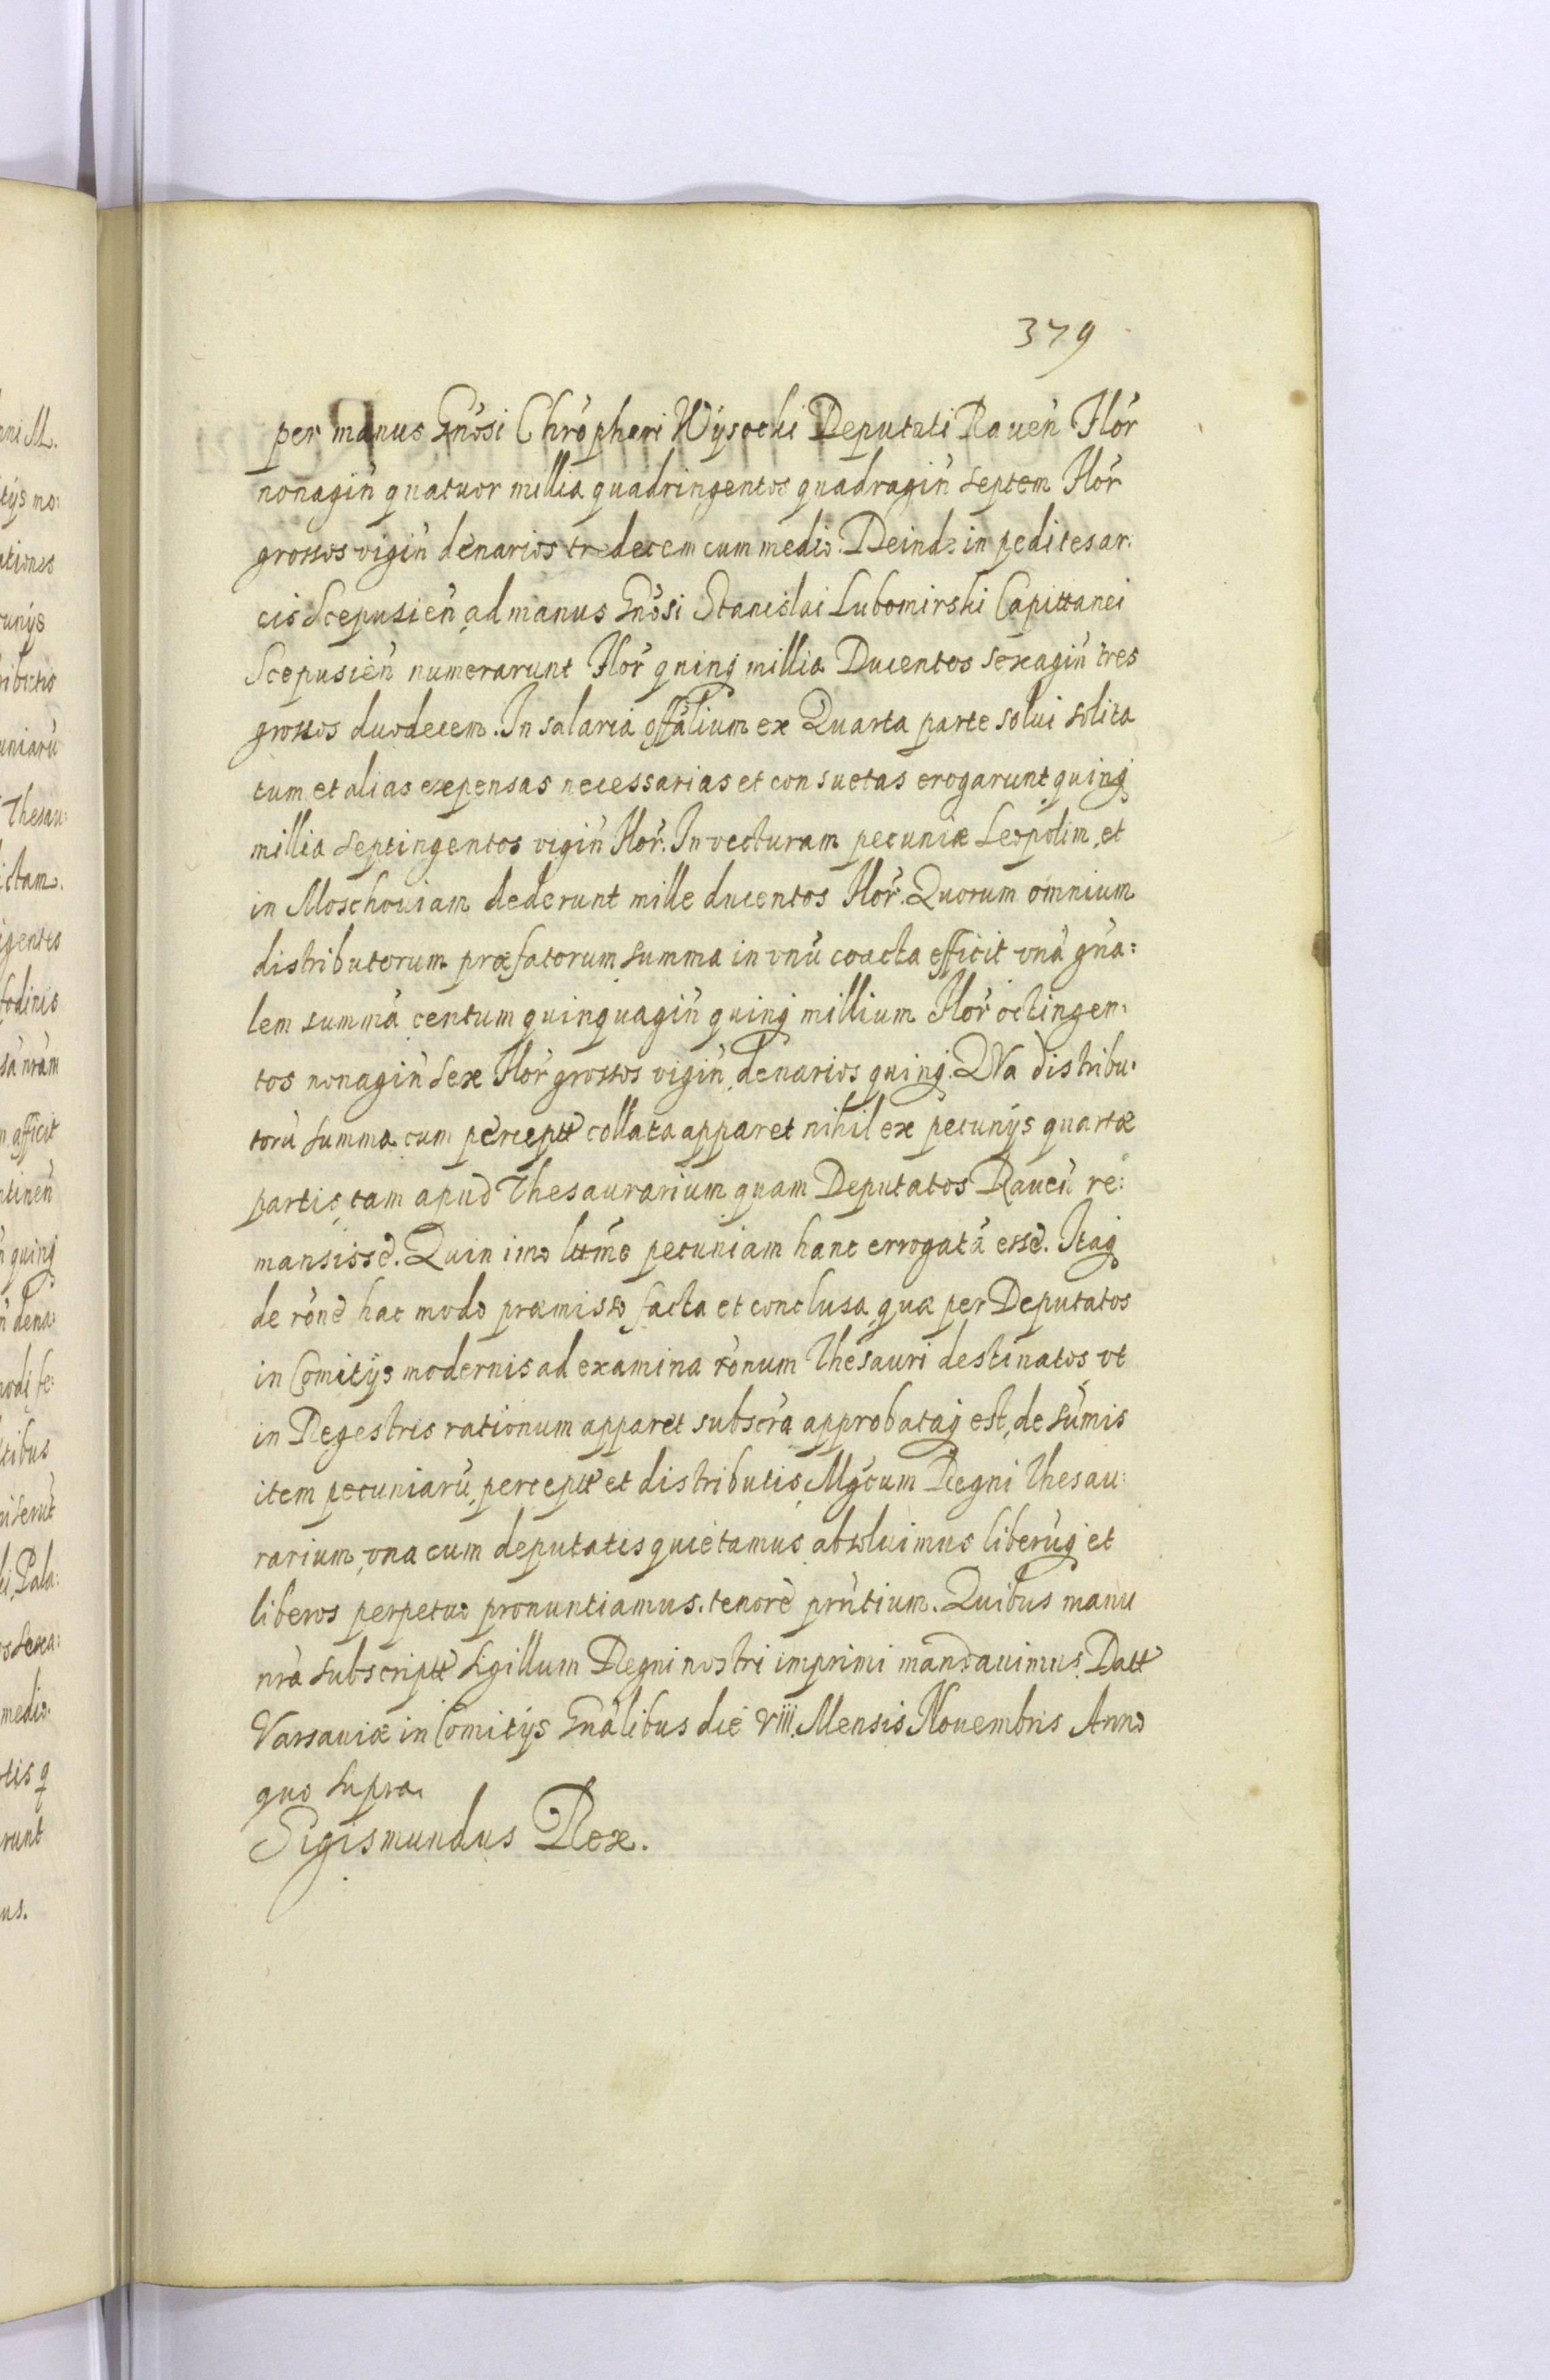 379
per manus Gnosi Chrõpheri Wysocki Deputati Raueñ Flor̃
nonagiñ quatuor millia quadringentos quadragiñ septem Flor̃
grossos vigiñ denarios tredecem cum medio. Deinde in pedites ar:
cis Scepusieñ ad manus Gnõsi Stanislai Lubomirski Capittanei
Scepusieñ numerarunt Flor̃ quinq millia Ducentos sexagiñ tres
grossos duodecem. In salaria offãlium ex Quarta parte solui solita
tum et alias expensas necessarias et consuetas erogarunt quinq
millia septingentos vigiñ Flor̃. In vecturam pecuniæ Leopolim, et
in Moschouiam dederunt mille ducentos Flor̃. Quorum omnium
distributorum præfatorum summa in vnũ coacta efficit vnã gña:
lem summã centum quinquagiñ quinq millium Flor̃ octingen:
tos nonagiñ sex Flor̃ grossos vigiñ denarios quinq. QVa distribu:
torũ summa cum perceptt collata apparet nihil ex pecunijs quartæ
partis, tam apud Thesaurarium quam Deputatos Raueñ re:
mansisse. Quin imo lttme pecuniam hanc errogatã esse. Itaq
de rõne hac modo præmisso facta et conclusa, quæ per Deputatos
in Comitijs modernis ad examina rõnum Thesauri destinatos, vt
in Regestris rationum apparet subscrã approbataq est, de sũmis
item pecuniarũ, perceptt et distributis, Mgcum Regni Thesau:
rarium, vna cum deputatis quietamus, absoluimus liberũq et
liberos perpetuo pronuntiamus. tenore prñtium. Quibus manu
nrã subscriptt Sigillum Regni nostri imprimi mandauimus. Datt
Varsauiæ in Comitijs Gñalibus die viii Mensis Nouembris Anno
quo supra.
Sigismundus Rex.